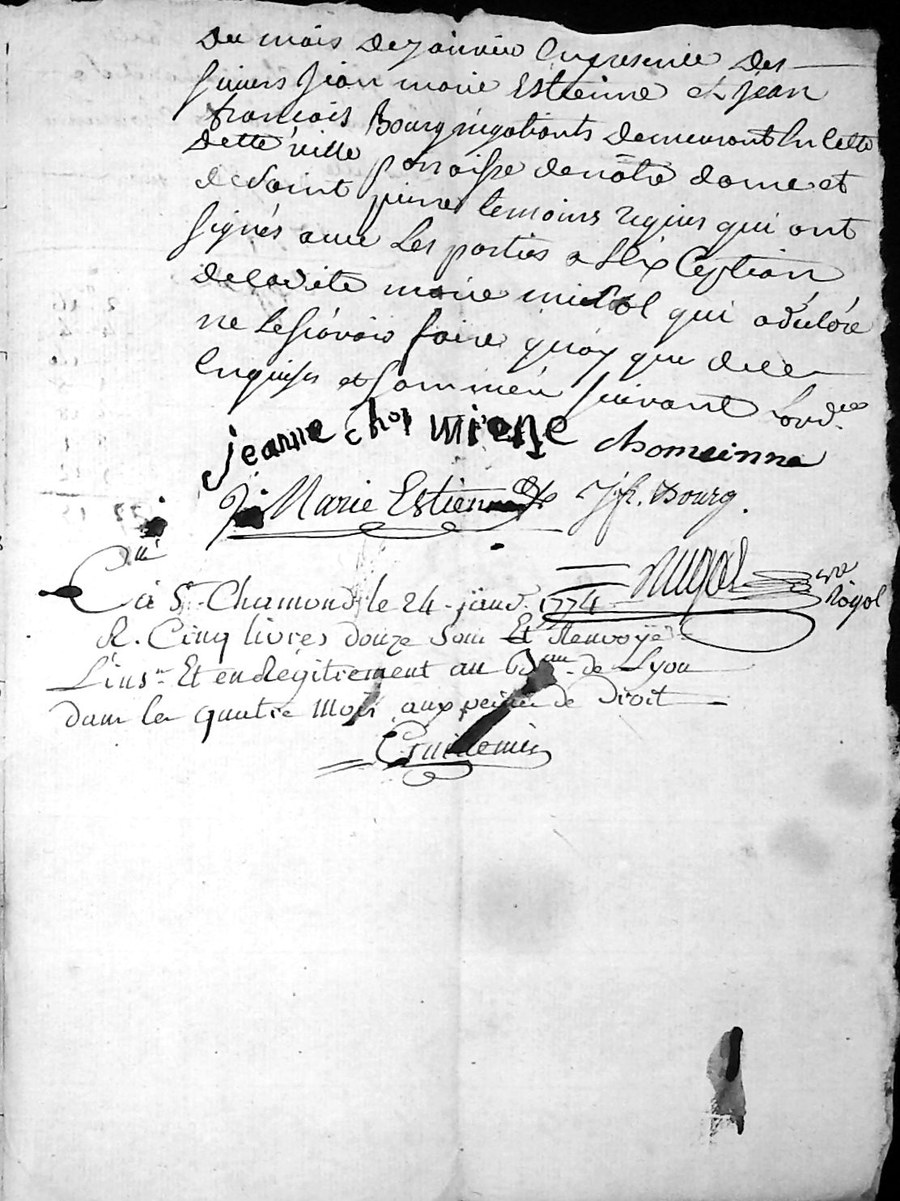 du mois de janvier En presence des
sieurs Jean marie Estienne et jean
françois Bourg négotiants demeurants En cette
dette ville parroisse de nôtre dame et
de saint pierre temoins requis qui ont
signés avec Les parties a L'Ex Ception
de ladite marie qui a déclaré
ne Le sçavoir faire quoy que de ce
Enquise et sommée suivant L'ord.ce
jeanne chomeienne chomeinne
J Marie Estienne J f. Bourg.
C.lé à St. Chamond le 24 janv. 1774
R. Cinq livres douze sous Et Renvoyé
L'ins.on Et en Regitrement au B.au de Lyon
dans les quatre mois aux peines de Droit